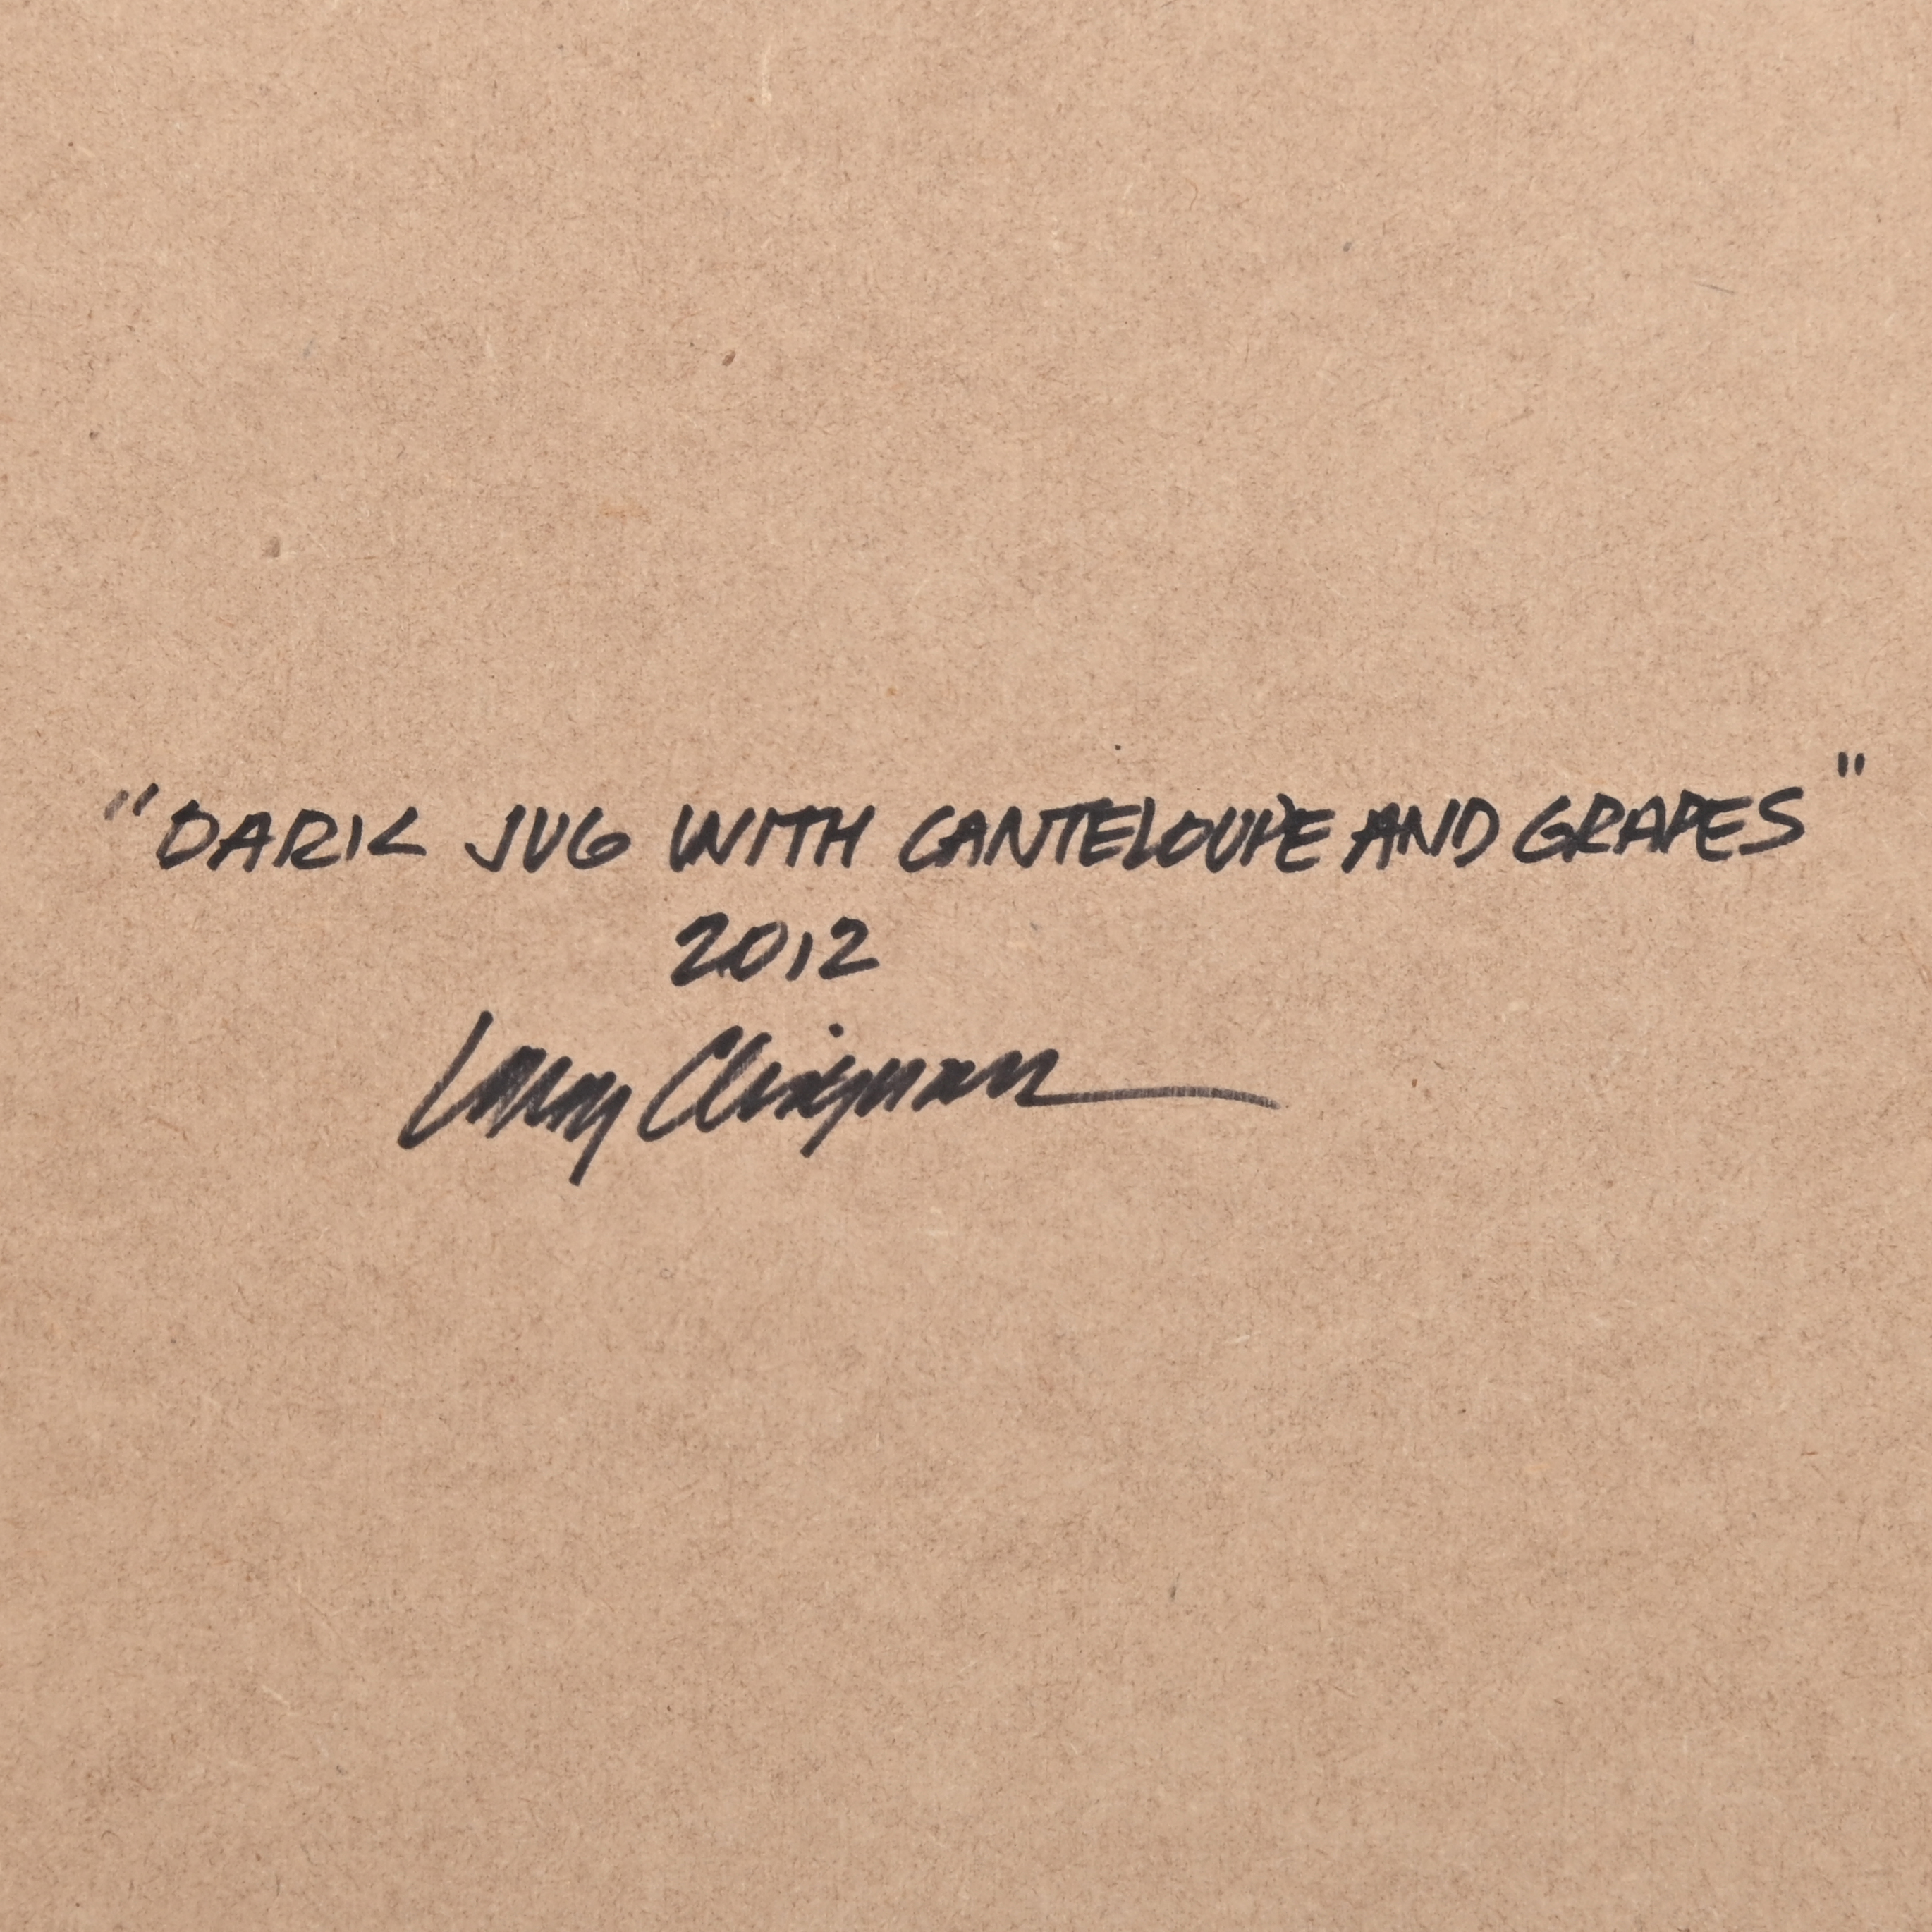 "DARK JUG WITH CANTELOUPE AND GRAPES"
2012
Larry